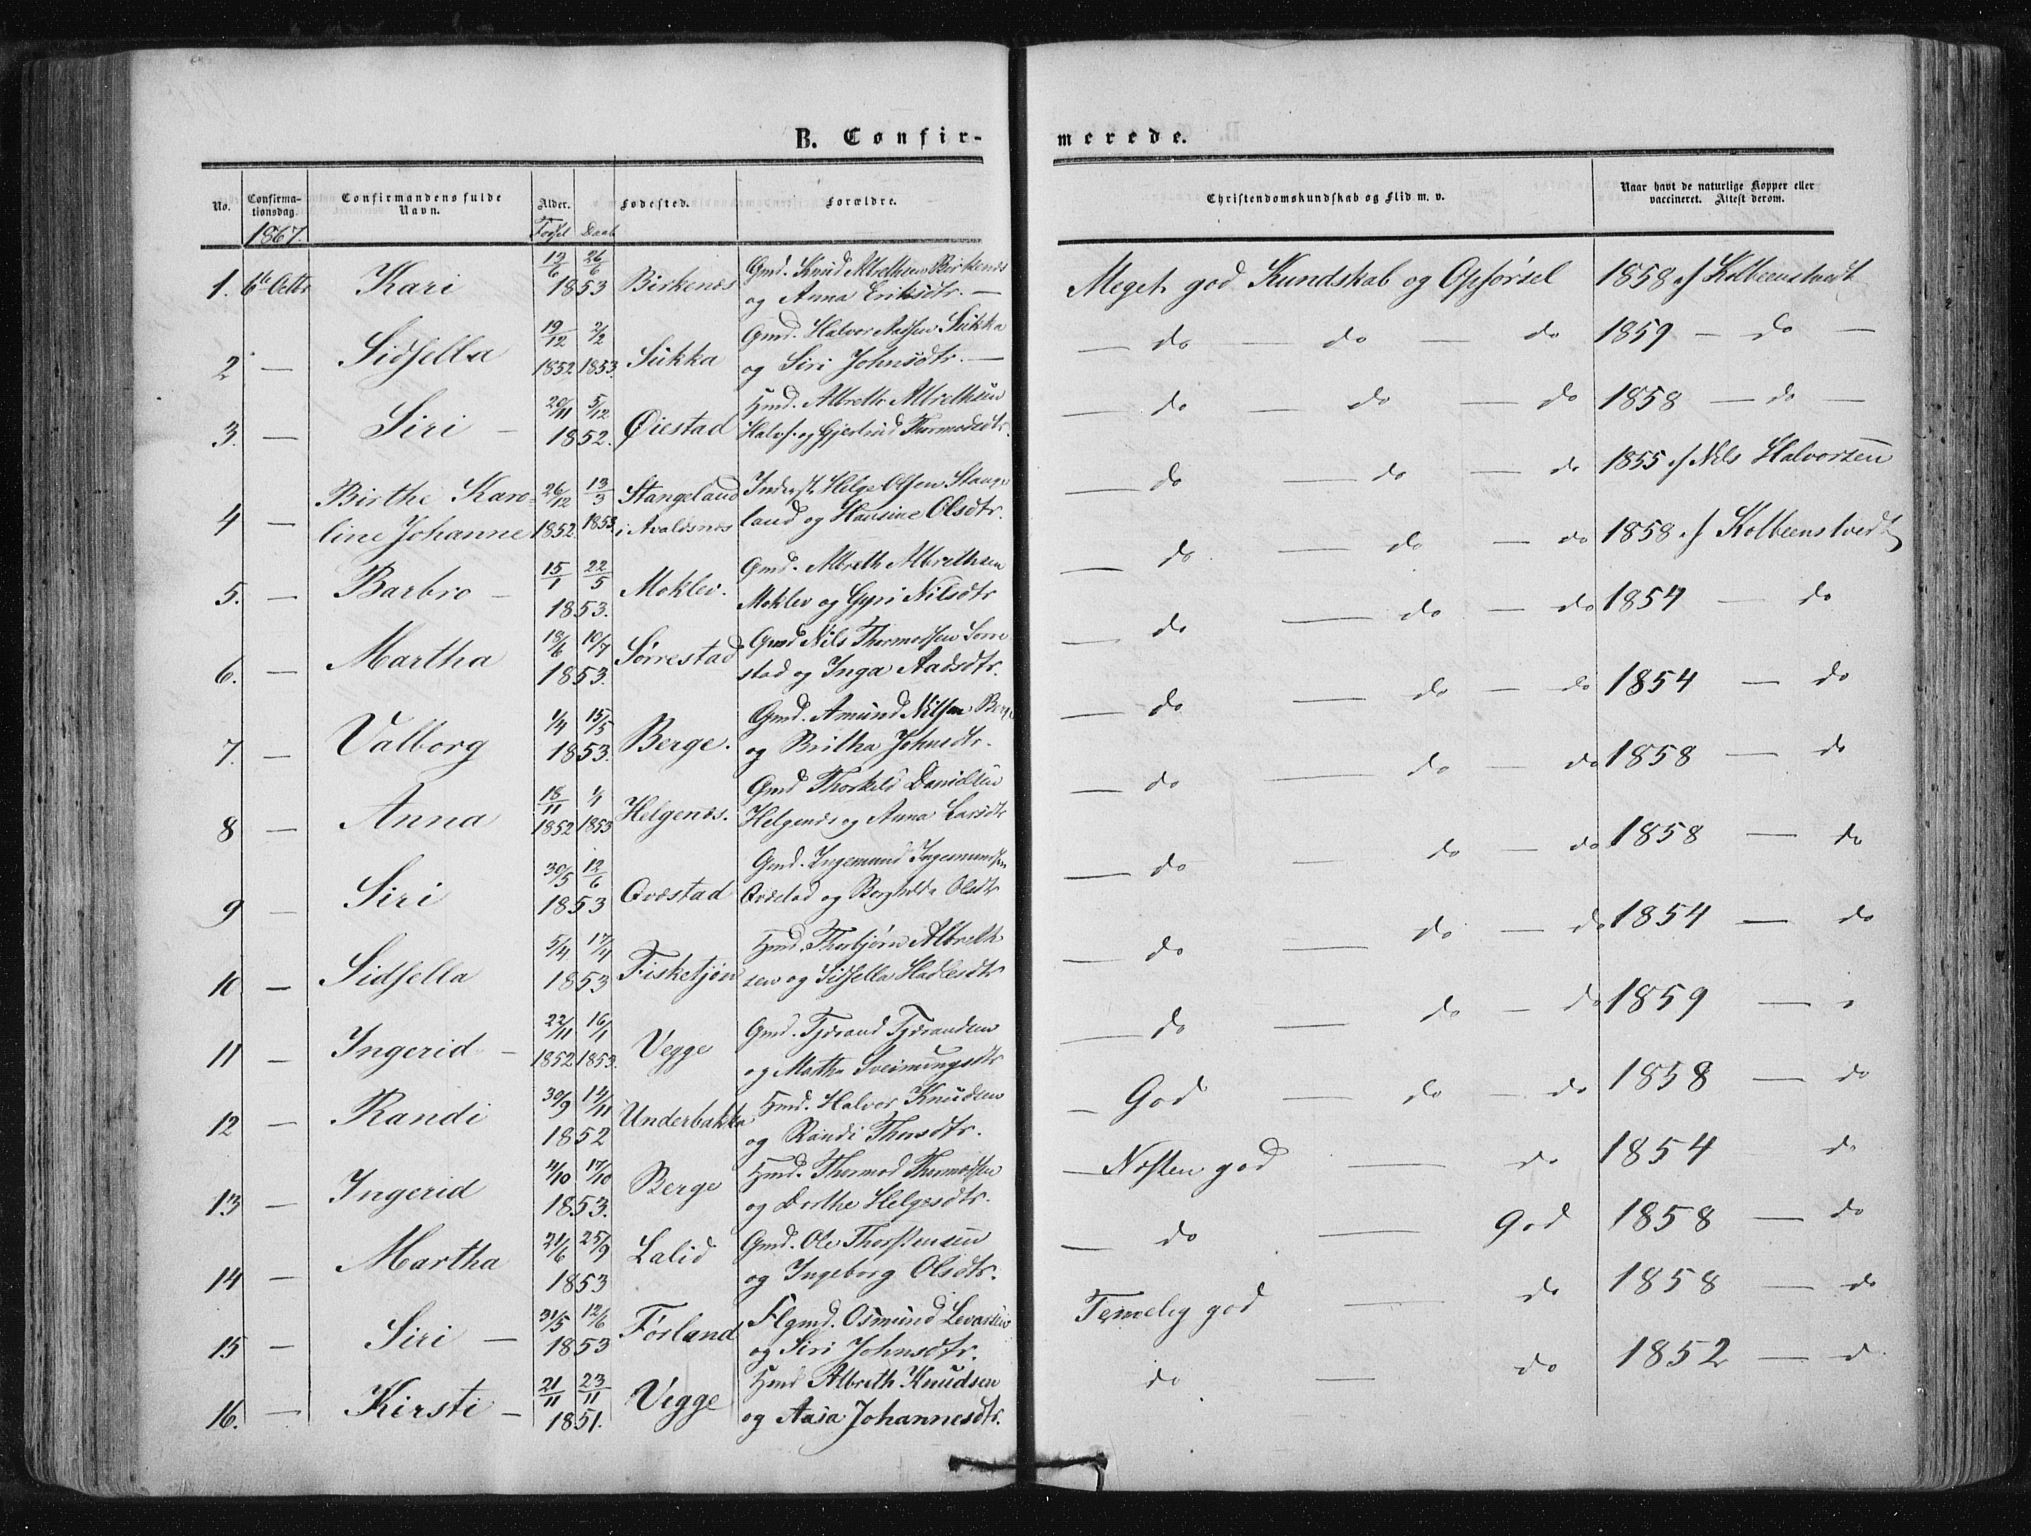 B. Confir-
merede.
No.
Confirma-
tionsdag.
Confirmandens fulde
Navn.
Alder.
Fødested.
Forældre.
Christendomskundskab og Flid m. v.
Naar havt de naturlige Kopper eller
vaccineret. Attest derom.
1867.
Fødsel Daab
12/6 26/6 Gmd. Knud Albrethsen Birkenæs
1. 6te Octbr Kari 1853 Birkenæs og Anna Eriksdtr. — Meget god Kundskab og Opførsel 1858 af Kolbeenstvedt
19/12 2/2 Gmd. Halvor Aadsen Sukka
2 — Sidsella 1852 1853. Sukka og Siri Johnsdtr. — — do — do — do 1859 — do —
20/11 5/12 Hmd. Albreth Albrethsen
3. — Siri — 1852. Øiestad Halvf. og Gjertrud Thormodsdtr. — do — do — do 1858 — do —
Birthe Karo- 26/12 13/3 Stangeland Inderst Helge Olsen Stange
4 — line Johanne 1852 1853. i Avaldsnæs land og Hansine Olsdtr. — do — do — do 1855 af Nils Halvorsen
15/1 22/5 Gmd. Albreth Albrethsen
5. — Barbro — 1853. Moklev. Moklev og Gyri Nilsdtr — do — do — do 1858 af Kolbeenstvedt
18/6 10/7 Gmd Nils Thormodsen Sørre
6. — Martha 1853. Sørrestad stad og Inga Aadsdtr. — do — do — do 1854 — do
1/4 15/5 Gmd. Amund Nilsen Berge
7. — Valborg 1853. Berge. og Britha Johnsdtr. — do — do — do 1854 — do
18/11 1/1 Gmd Thorkild Danielsen
8 — Anna 1852 1853 Helgenæs. Helgenæs og Anna Larsdtr — do — do — do 1858 — do
30/5 12/6 Gmd. Ingemund Ingemundsen
9 — Siri 1853 Ovestad Ovestad og Borghilda Olsdtr — do — do — do 1858 — do
5/4 17/4 Hmd. Thorbjørn Albreth
10 — Sidsella 1853 Fisketjøn sen og Sidsella Hadlesdtr — do — do — do 1854 — do
22/11 16/1 Gmd. Tjerand Tjerandsen
11 — Ingerid — 1852 1853. Vegge og Martha Sveinungsdtr — do — do — do 1859 —
30/9 14/11 Hmd. Halvor Knudsen
12 — Randi 1852 Underbakka og Randi Thorsdtr. — God — do — do 1858 — do
4/10 17/10 Hmd. Thormod Thormodsen
13 — Ingerid 1853. Berge og Dorthe Helgesdtr. — Næsten god — do 1854 — do
21/6 25/9 Gmd. Ole Thorstensen
14 — Martha 1853 Lalid og Ingeborg Olsdtr. — do — God 1858 — do
31/5 12/6 Flgmd. Osmund Levarsen
15 — Siri — 1853 Førland og Siri Johnsdtr. Temelig god — do 1858 — do
21/11 23/11 Hmd Albreth Knudsen
16. — Kirsti — 1851. Vegge og Aasa Johannesdtr. do — do 1852 — d